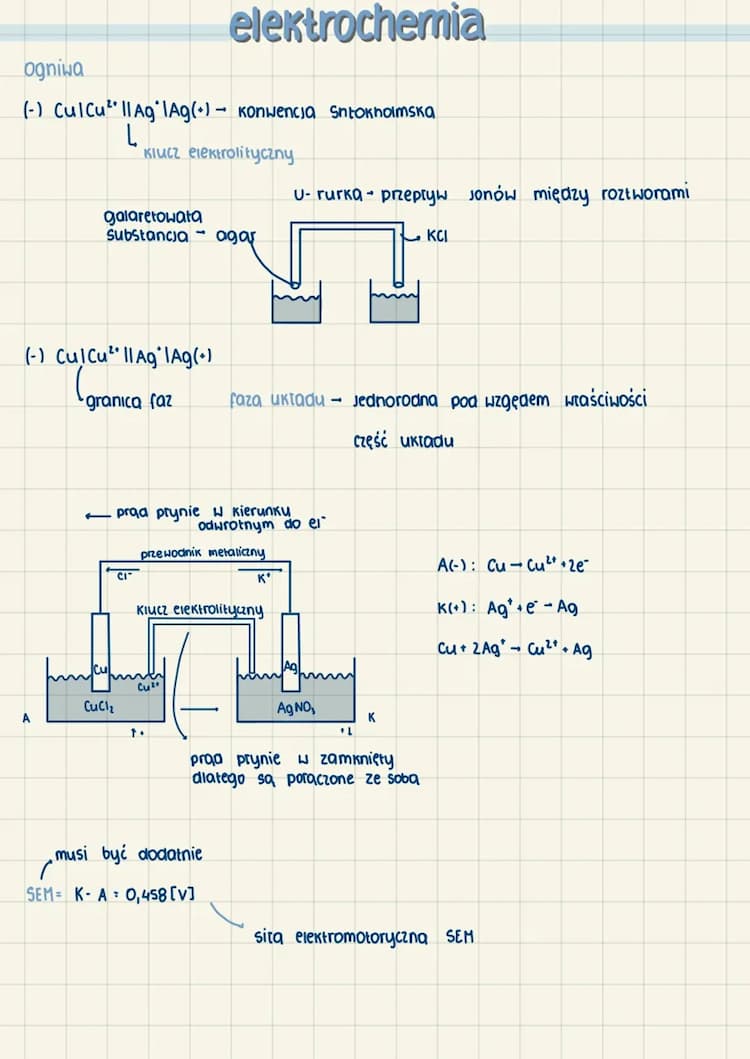 elektrochemia
ogniwa
(-) Cu|Cu²⁺||Ag⁺|Ag(+) → konwencja Sntokholmska
klucz elektrolityczny
U- rurka → przepływ jonów między roztworami
galaretowata
substancja → agar
KCl
(-) Cu|Cu²⁺||Ag⁺|Ag(+)
granica faz
faza układu → jednorodna pod wzgędem właściwości
część układu
← prąd płynie w kierunku
odwrotnym do el⁻
przewodnik metaliczny
Cl⁻ K⁺
klucz elektrolityczny
A(-): Cu → Cu²⁺ + 2e⁻
K(+): Ag⁺ + e⁻ → Ag
Cu + 2Ag⁺ → Cu²⁺ + Ag
Cu Ag
Cu²⁺
CuCl₂ AgNO₃
A K
prąd płynie w zamknięty
dlatego są połączone ze sobą
musi być dodatnie
SEM = K - A = 0,458 [V]
siła elektromotoryczna SEM